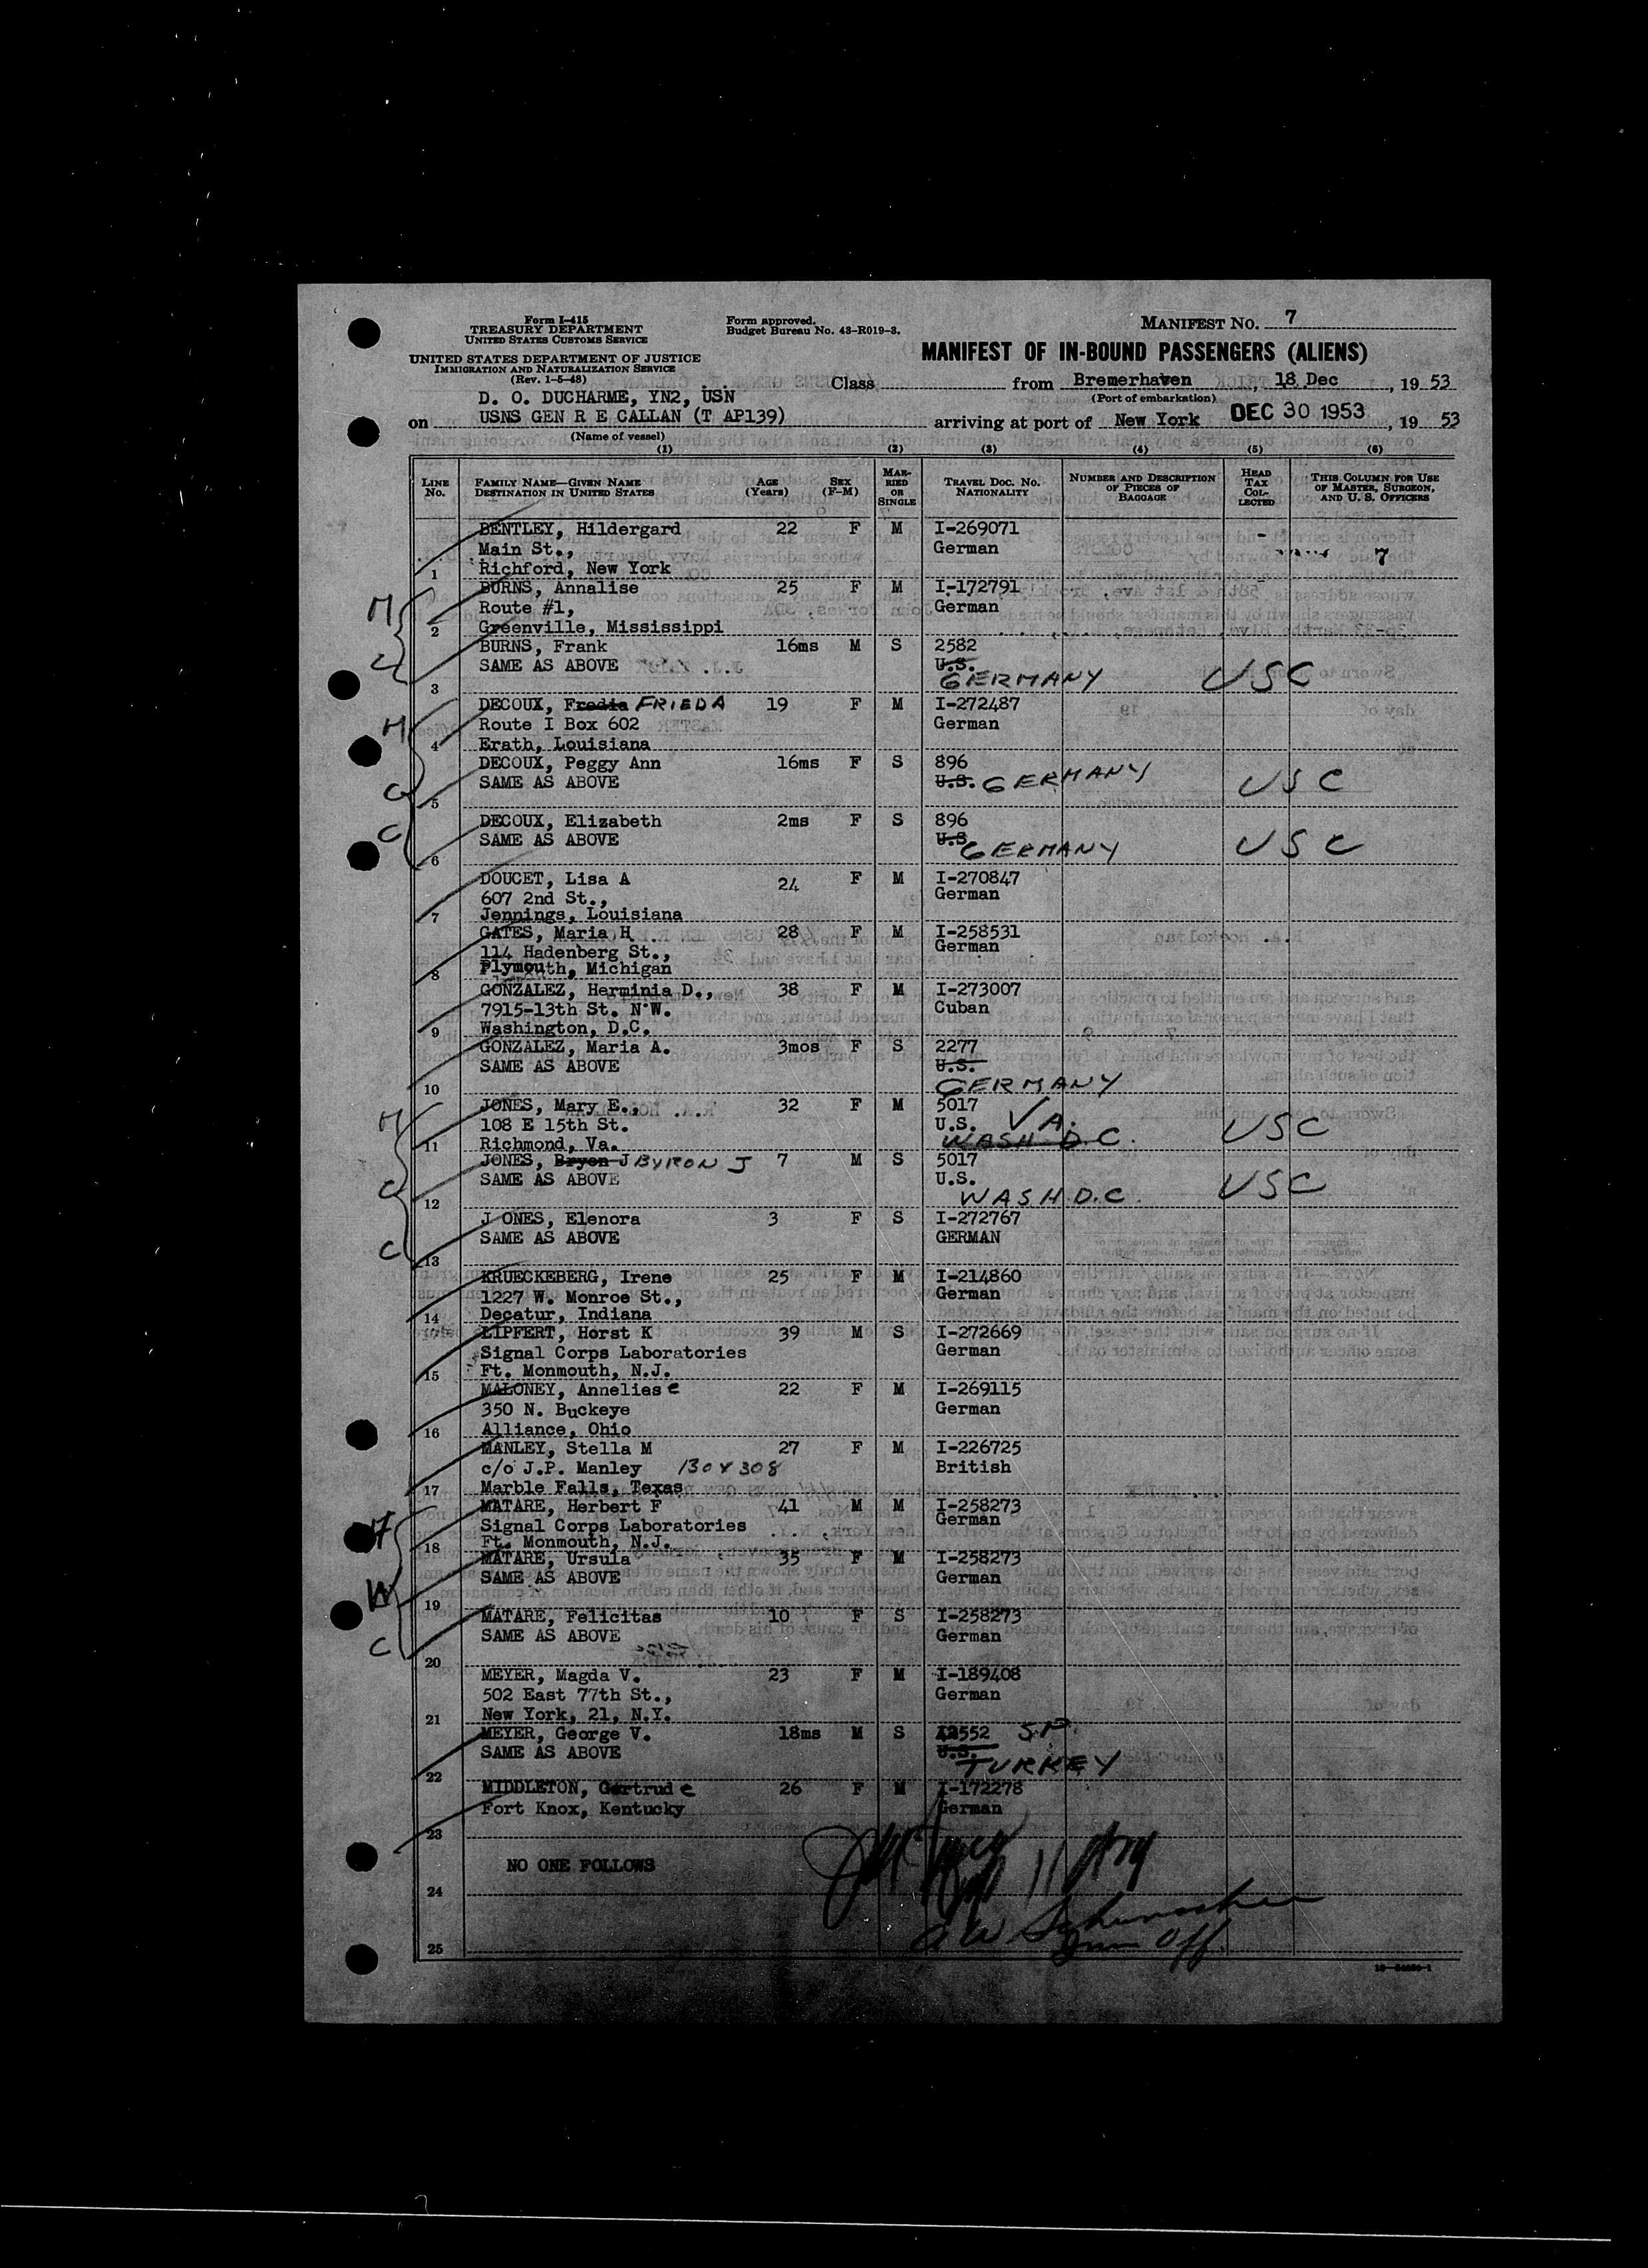 Form I-415
TREASURY DEPARTMENT
UNITED STATES CUSTOMS SERVICE
UNITED STATES DEPARTMENT OF JUSTICE
IMMIGRATION AND NATURALIZATION SERVICE
(Rev. 1-5-48)
Form approved.
Budget Bureau No. 43-R019-3.
MANIFEST NO. 7
MANIFEST OF IN-BOUND PASSENGERS (ALIENS)
Class from Bremerhaven, 18 Dec, 1953
(Port of embarkation)
D. O. DUCHARME, YN2, USN
on USNS GEN R E CALLAN (T AP139) arriving at port of New York DEC 30 1953, 19 53
(Name of vessel)
(1) (2) (3) (4) (5) (6)
LINE NO. FAMILY NAME—GIVEN NAME DESTINATION IN UNITED STATES AGE (Years) SEX (F-M) MARRIED OR SINGLE TRAVEL DOC. NO. NATIONALITY NUMBER AND DESCRIPTION OF PIECES OF BAGGAGE HEAD TAX COLLECTED THIS COLUMN FOR USE OF MASTER, SURGEON, AND U. S. OFFICERS
BENTLEY, Hildergard 22 F M I-269071
Main St., German 7
1 Richford, New York
BURNS, Annalise 25 F M I-172791
M Route #1, German
2 Greenville, Mississippi
BURNS, Frank 16ms M S 2582
C SAME AS ABOVE U.S.
3 GERMANY USC
DECOUX, Fredia FRIEDA 19 F M I-272487
M Route I Box 602 German
4 Erath, Louisiana
DECOUX, Peggy Ann 16ms F S 896
C SAME AS ABOVE U.S. GERMANY USC
5
DECOUX, Elizabeth 2ms F S 896
C SAME AS ABOVE U.S. GERMANY USC
6
DOUCET, Lisa A 24 F M I-270847
607 2nd St., German
7 Jennings, Louisiana
GATES, Maria H 28 F M I-258531
114 Hadenberg St., German
8 Plymouth, Michigan
GONZALEZ, Herminia D., 38 F M I-273007
7915-13th St. N.W. Cuban
9 Washington, D.C.
GONZALEZ, Maria A. 3mos F S 2277
SAME AS ABOVE U.S.
10 GERMANY
M JONES, Mary E., 32 F M 5017
108 E 15th St. U.S. VA. USC
11 Richmond, Va. WASH D.C.
JONES, Bryon J BYRON J 7 M S 5017
C SAME AS ABOVE U.S. USC
12 WASH D.C.
J ONES, Elenora 3 F S I-272767
C SAME AS ABOVE GERMAN
13
KRUECKEBERG, Irene 25 F M I-214860
1227 W. Monroe St., German
14 Decatur, Indiana
LIPFERT, Horst K 39 M S I-272669
Signal Corps Laboratories German
15 Ft. Monmouth, N.J.
MALONEY, Anneliese 22 F M I-269115
350 N. Buckeye German
16 Alliance, Ohio
MANLEY, Stella M 27 F M I-226725
c/o J.P. Manley BOX 308 British
17 Marble Falls, Texas
MATARE, Herbert F 41 M M I-258273
Signal Corps Laboratories German
18 Ft. Monmouth, N.J.
MATARE, Ursula 35 F M I-258273
W SAME AS ABOVE German
19
MATARE, Felicitas 10 F S I-258273
C SAME AS ABOVE German
20
MEYER, Magda V. 23 F M I-189408
502 East 77th St., German
21 New York, 21, N.Y.
MEYER, George V. 18ms M S 12552 S.P.
SAME AS ABOVE U.S.
22 TURKEY
MIDDLETON, Gertrude 26 F M I-172278
Fort Knox, Kentucky German
23
NO ONE FOLLOWS
24
A W Schumacher
Imm Off.
25